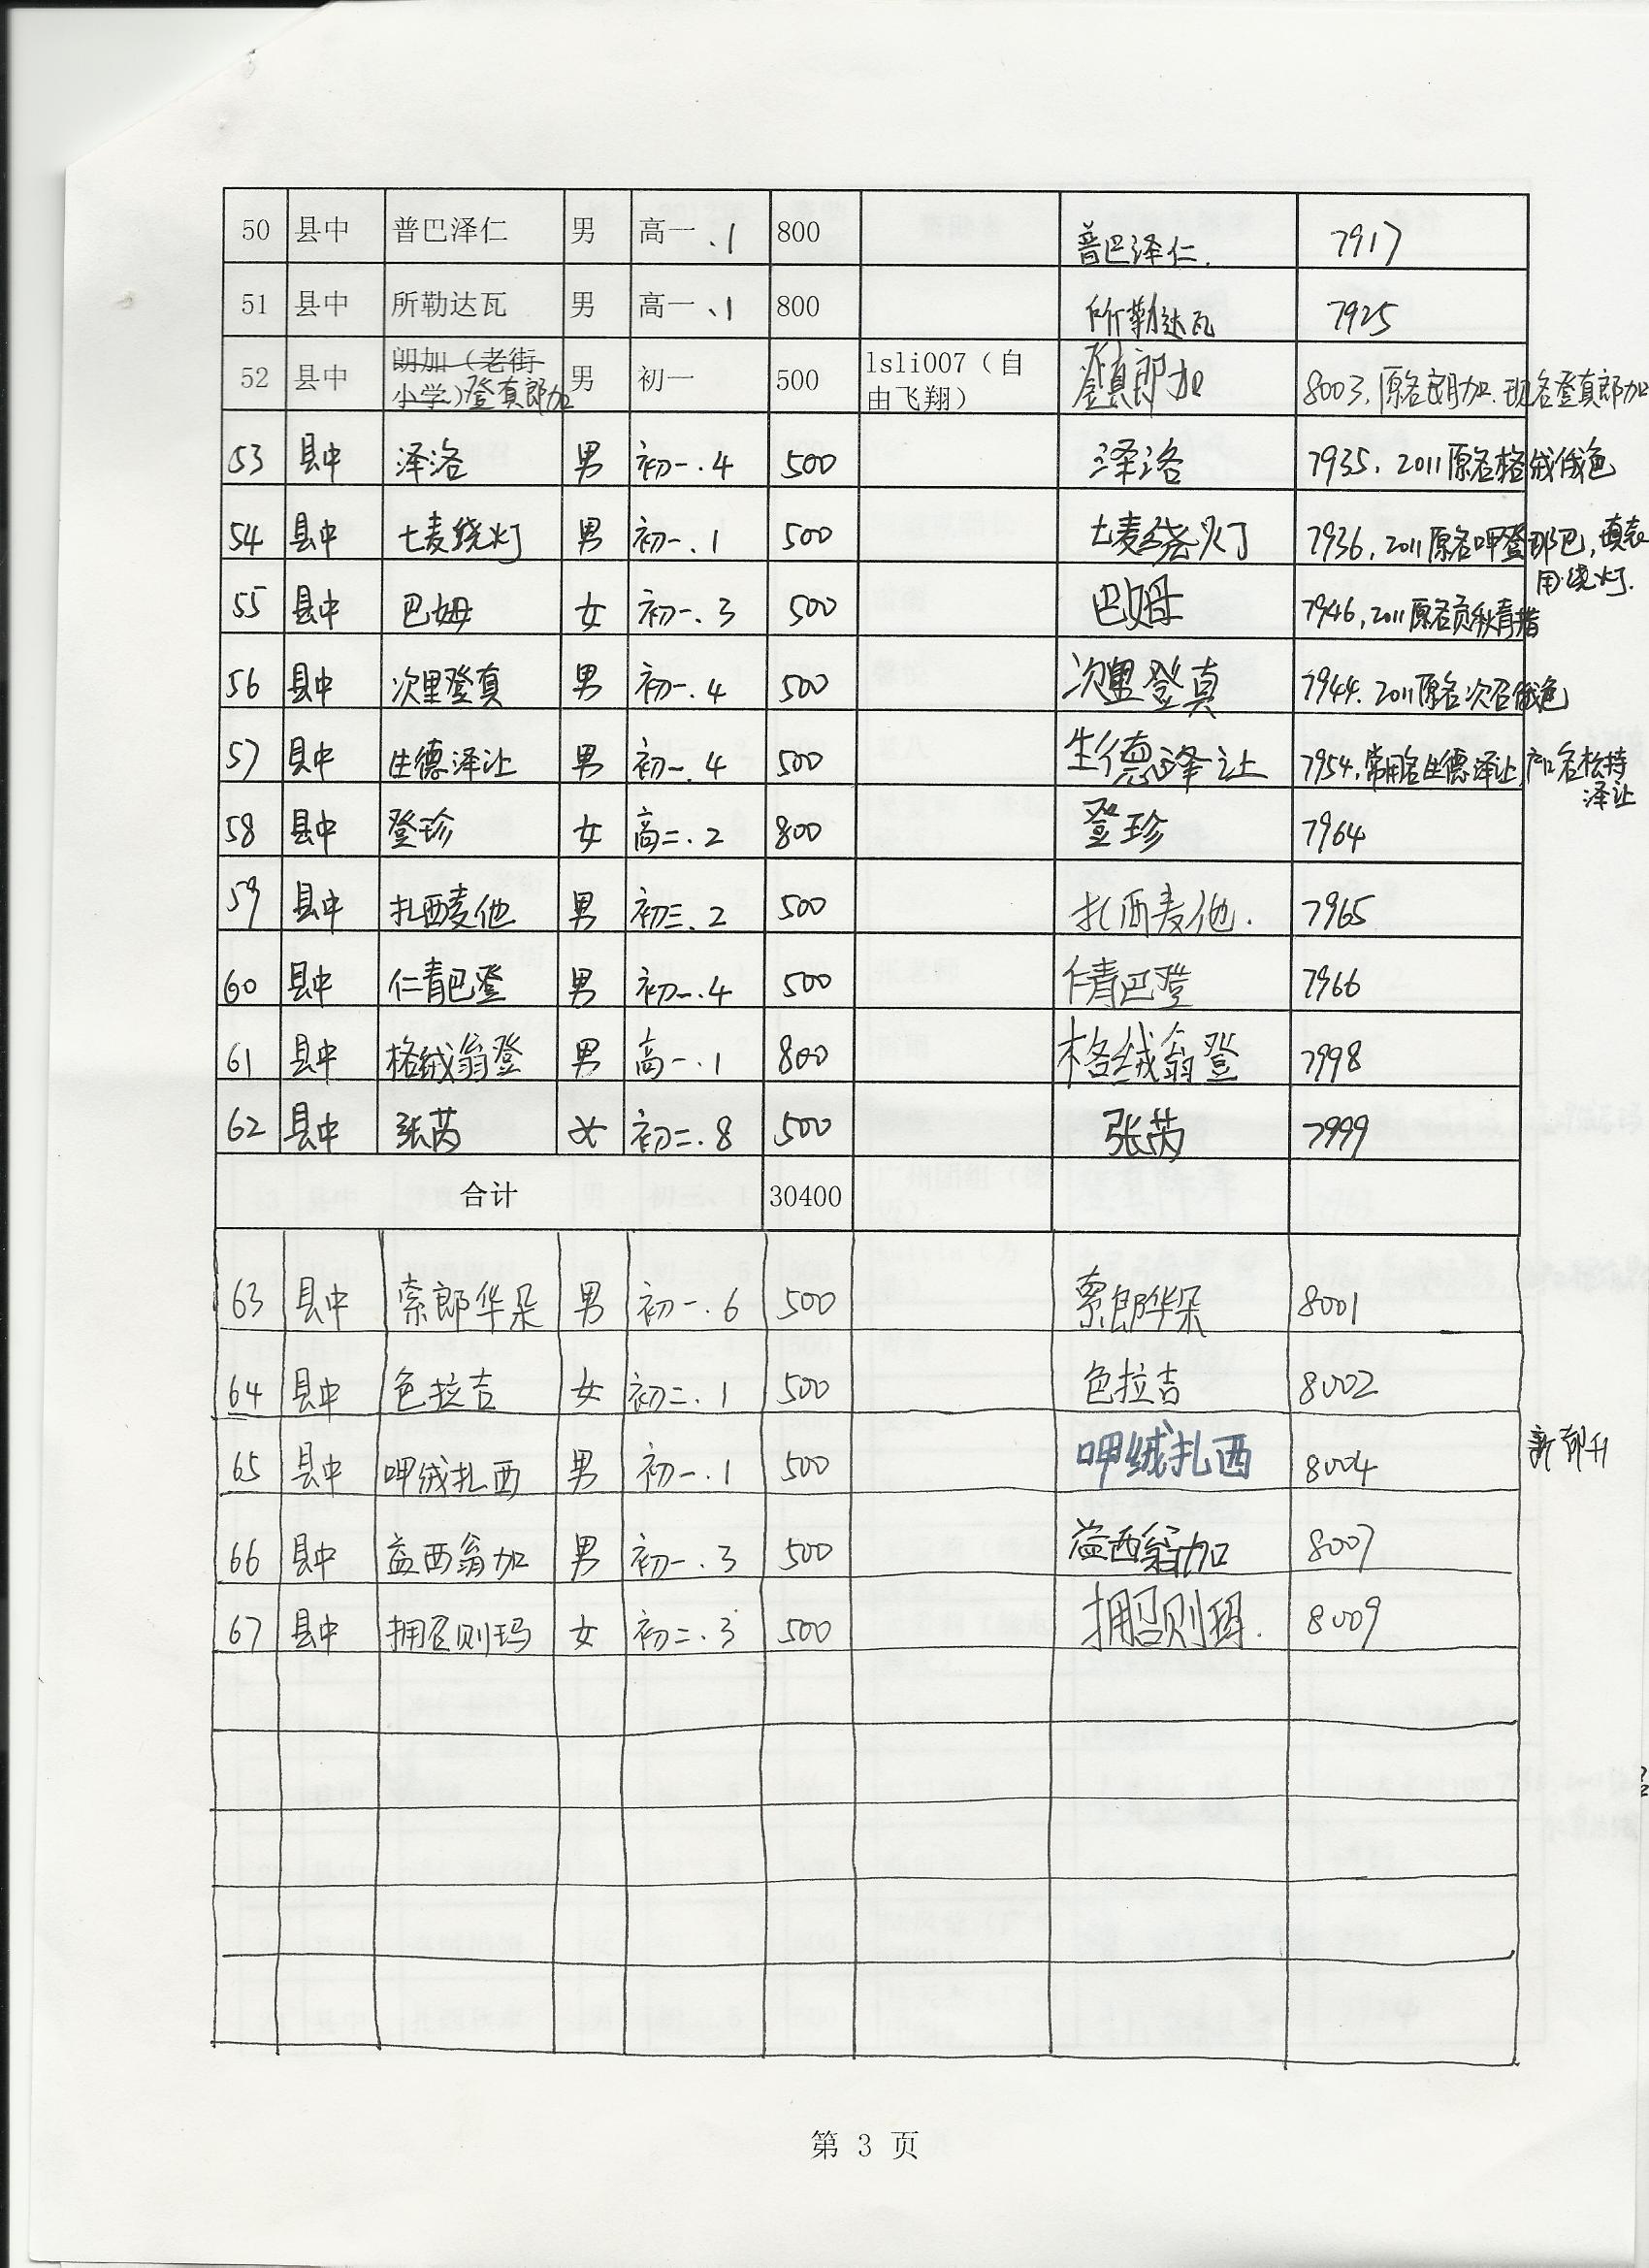 50 县中 普巴泽仁 男 高一 、1 800 普巴泽仁. 7917
51 县中 所勒达瓦 男 高一 、1 800 所勒达瓦 7925
52 县中 朗加（老街小学）登真郎加 男 初一 500 lsli007（自由飞翔） 登真郎加 8003,原名朗加.现名登真郎加
53 县中 泽洛 男 初一.4 500 泽洛 7935,2011原名格绒俄色
54 县中 七麦绕灯 男 初一.1 500 七麦绕灯 7936,2011原名呷登那巴,填表
用绕灯.
55 县中 巴姆 女 初一.3 500 巴姆 7946,2011原名贡秋青措
56 县中 次里登真 男 初一.4 500 次里登真 7944.2011原名次召俄色
57 县中 生德泽让 男 初一.4 500 生德泽让 7954,常用名生德泽让,户口名松持
泽让
58 县中 登珍 女 高二.2 800 登珍 7964
59 县中 扎西麦他 男 初三.2 500 扎西麦他. 7965
60 县中 仁青巴登 男 初一.4 500 仁青巴登 7966
61 县中 格绒翁登 男 高一.1 800 格绒翁登 7998
62 县中 张芮 女 初二.8 500 张芮 7999
合计 30400
63 县中 索郎华朵 男 初一.6 500 索郎华朵 8001
64 县中 色拉吉 女 初二.1 500 色拉吉 8002
65 县中 呷绒扎西 男 初一.1 500 呷绒扎西 8004
66 县中 益西翁加 男 初一.3 500 益西翁加 8007
67 县中 拥召则玛 女 初二.3 500 拥召则玛. 8009
第 3 页